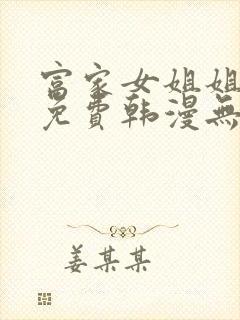 富家女姐姐
免费韩漫無
姜某某